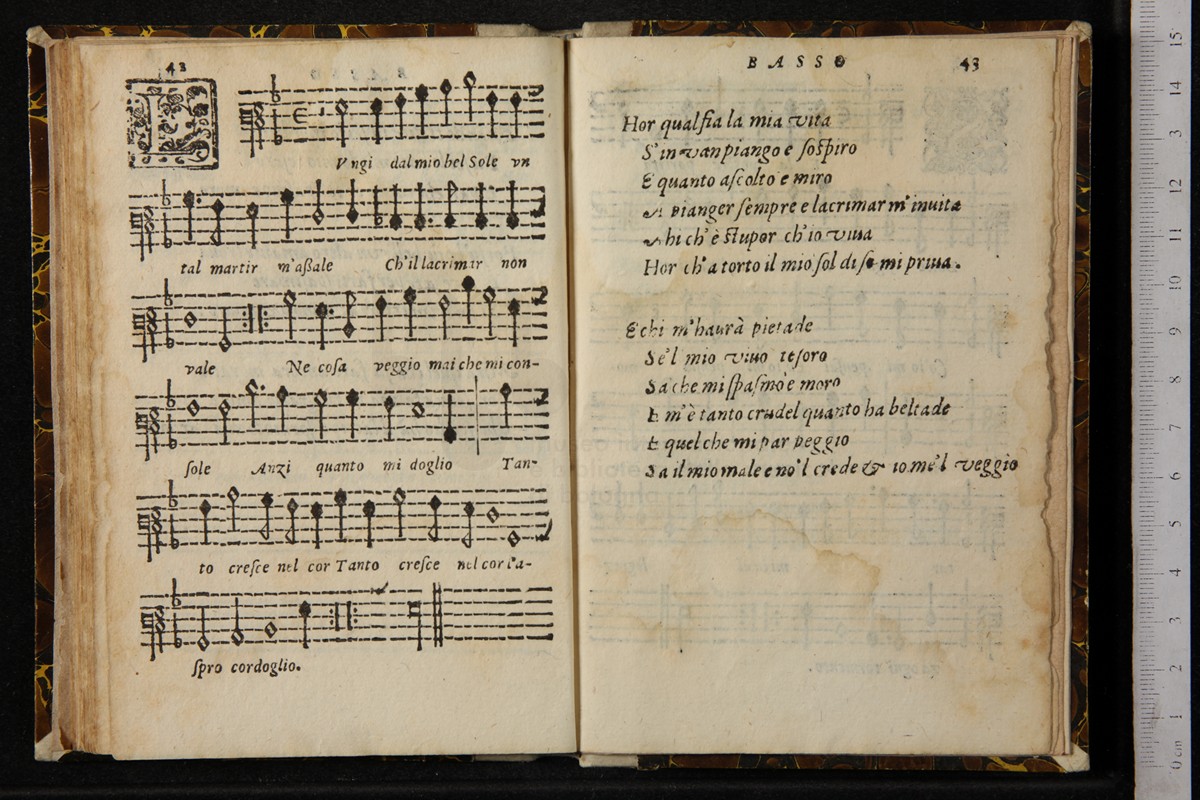 43
L Vngi dal mio bel Sole vn
tal martir m'aſſale Ch'il lacrimar non
vale Ne coſa veggio mai che mi con-
ſole Anzi quanto mi doglio Tan-
to creſce nel cor Tanto creſce nel cor l'a-
ſpro cordoglio.
BASSO 43
Hor qual ſia la mia vita
S'in van piango e ſoſpiro
E quanto aſcolto e miro
A pianger ſempre e lacrimar m'inuita
Ahi ch'è ſtupor ch'io viua
Hor ch'a torto il mio ſol di ſe mi priua.
E chi m'haurà pietade
Se'l mio viuo teſoro
Sa che mi ſpaſmo e moro
E m'è tanto crudel quanto ha beltade
E quel che mi par peggio
Sa il mio male e no'l crede & io me'l veggio
15
14
13
12
11
10
9
8
7
6
5
4
3
2
1
0 cm